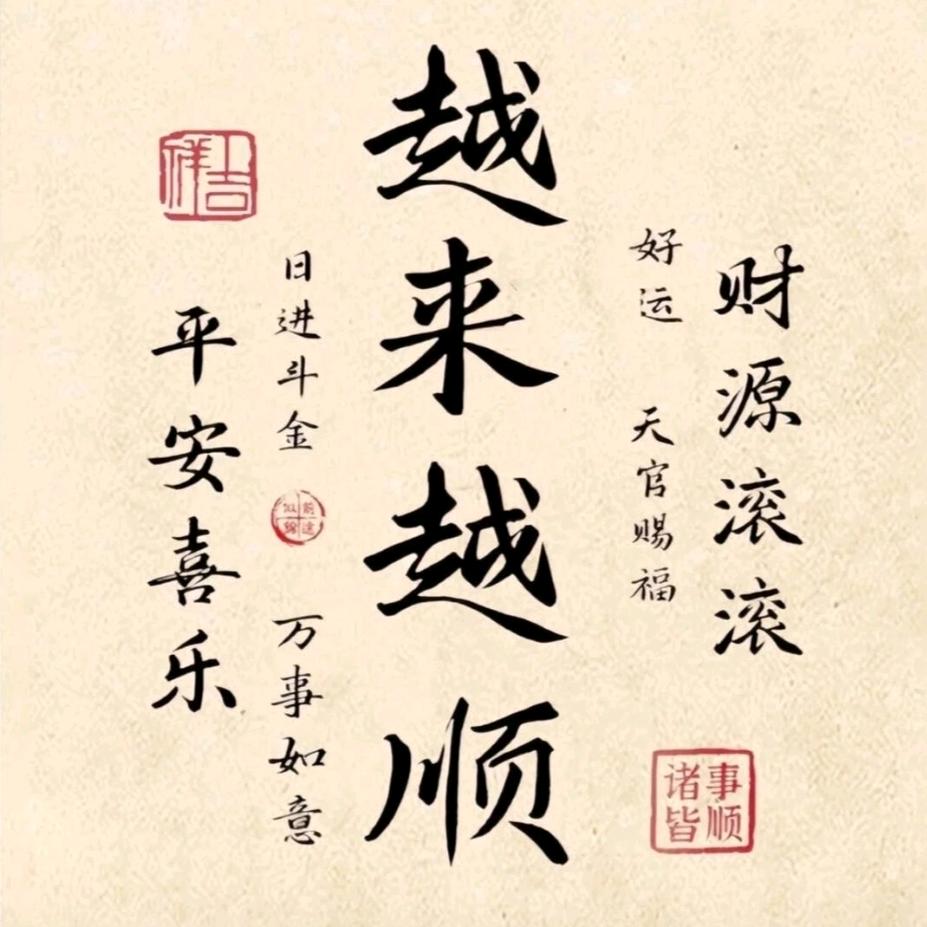 财源滚滚
好运 天官赐福
诸事
皆顺
越来越顺
日进斗金
前途
似锦
万事如意
吉祥
平安喜乐